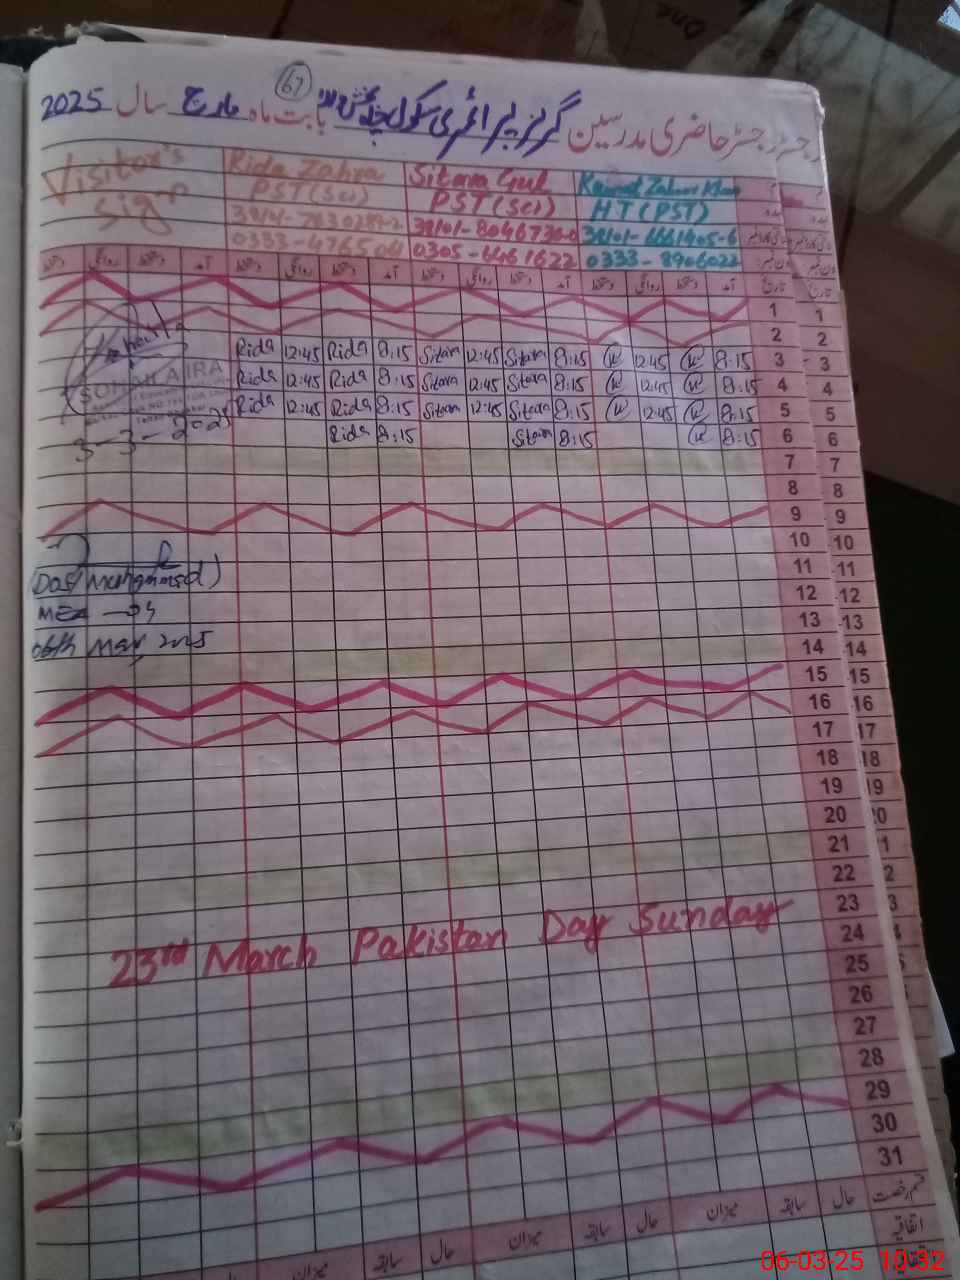 67
رجسٹر حاضری مدرسین گرلز پرائمری سکول بابت ماہ مارچ سال 2025
Visitor's Sign
Rida Zahra
PST (Sci)
Sitara Gul
PST (Sci)
38101-8046730-0
0305-6461622
HT (PST)
38101-6661405-6
0333-8906022
دستخط روانگی دستخط آمد دستخط روانگی دستخط آمد دستخط روانگی دستخط آمد دستخط روانگی دستخط آمد تاریخ
1 1
2 2
Rida 12:45 Rida 8:15 Sitara 12:45 Sitara 8:15 12:45 8:15 3 3
Rida 12:45 Rida 8:15 Sitara 12:45 Sitara 8:15 12:45 8:15 4 4
Rida 12:45 Rida 8:15 Sitara 12:45 Sitara 8:15 12:45 8:15 5 5
Rida 8:15 Sitara 8:15 8:15 6 6
SOHAILA IRA
3-3-2025
7 7
8 8
9 9
10 10
11 11
12 12
13 13
14 14
15 15
16 16
17 17
18 18
19 19
20 20
21
22
23
24
25
26
27
28
29
30
31
Muhammad)
MEA -04
06th Mar, 2025
23rd March Pakistan Day Sunday
میزان سابقہ حال میزان سابقہ حال میزان سابقہ حال قسم رخصت
اتفاقیہ
06-03-25 10:32